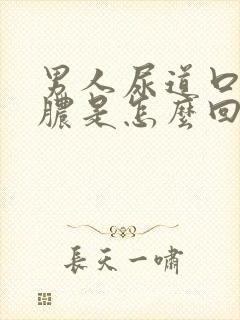 男人尿道口
膿是怎麼回
長天一嘯